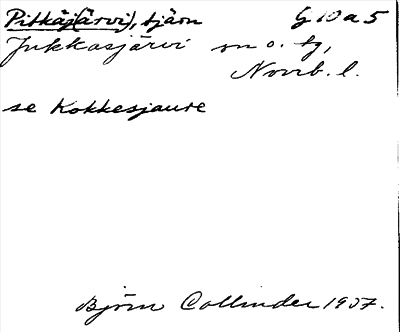 Pitkäj(ärvi), tjärn G 10 a 5
Jukkasjärvi sn o. tg,
Norrb. l.
se Kokkesjaure
Björn Collinder 1937.